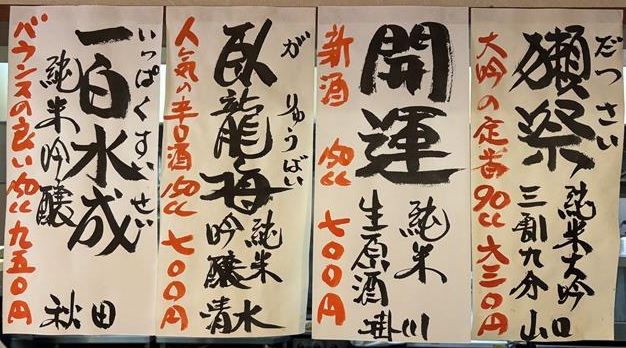 だっさい
獺祭
純米大吟
三割九分
山口
大吟の定番 90cc 六三〇円
開運
純米
生原酒
掛川
新酒 150cc 七〇〇円
がりゅうばい
臥龍梅
純米
吟醸
清水
人気の辛口酒 150cc 七〇〇円
いっぱくすいせい
一白水成
純米吟醸
秋田
バランスの良い 150cc 九五〇円